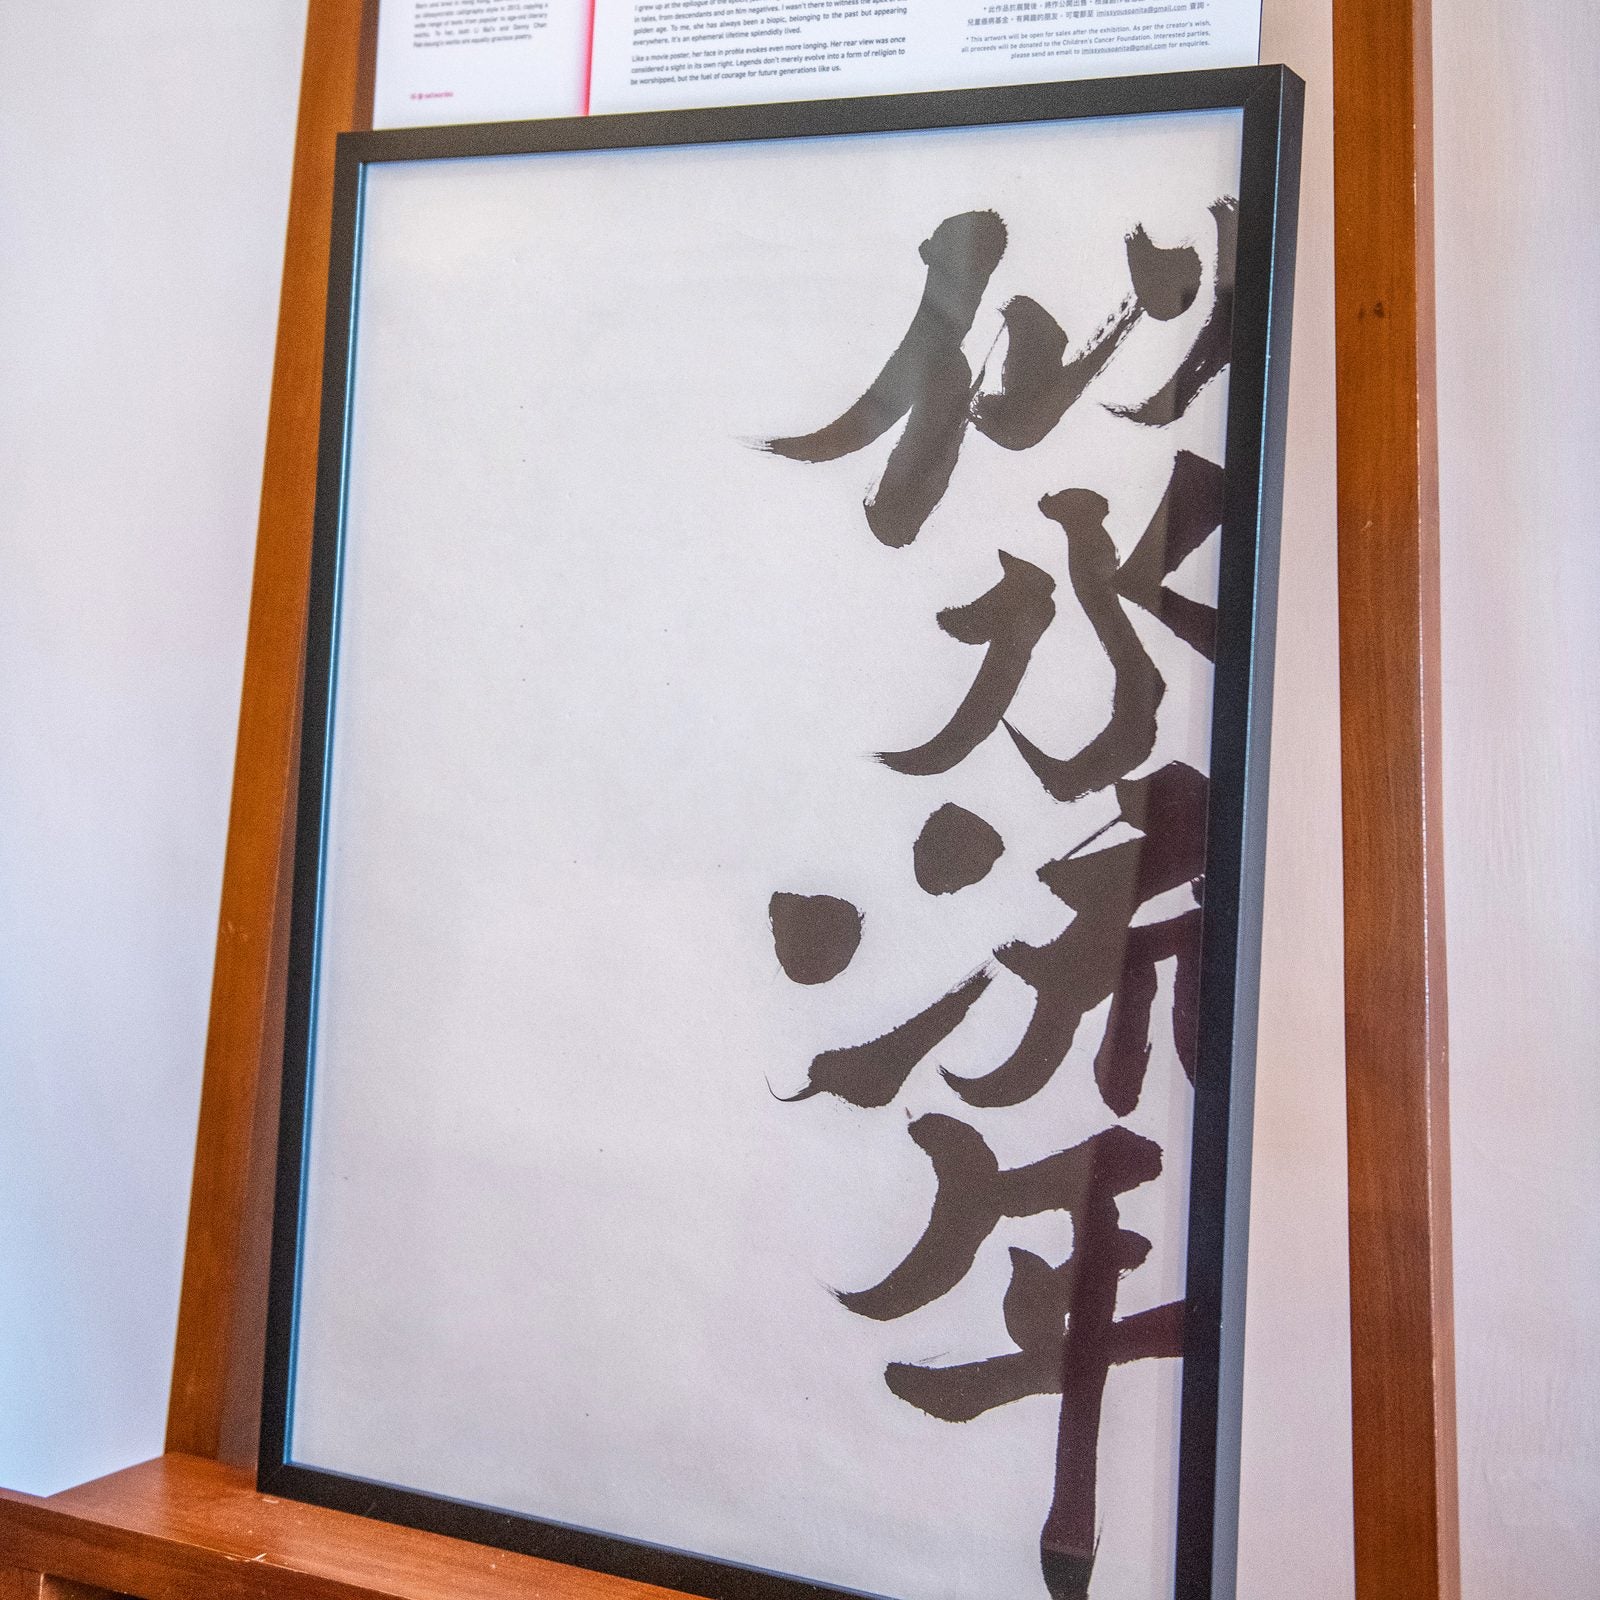 Born and lived in Hong Kong,
an idiosyncratic calligraphy style in 2013, copying a
wide range of texts from popular to age-old literary
works. To her, both Li Bai's and Danny Chan
Pak-keung's works are equally gracious poetry.
I grew up at the epilogue of the epoch
in tales, from descendants and on film negatives. I wasn't there to witness the apex of
golden age. To me, she has always been a biopic, belonging to the past but appearing
everywhere. It's an ephemeral lifetime splendidly lived.
Like a movie poster, her face in profile evokes even more longing. Her rear view was once
considered a sight in its own right. Legends don't merely evolve into a form of religion to
be worshipped, but the fuel of courage for future generations like us.
* 此作品於展覽後，將作公開出售，
兒童癌病基金。有興趣的朋友，可電郵至 imissyousoanita@gmail.com 查詢。
* This artwork will be open for sales after the exhibition. As per the creator's wish,
all proceeds will be donated to the Children's Cancer Foundation. Interested parties,
please send an email to imissyousoanita@gmail.com for enquiries.
似水流年